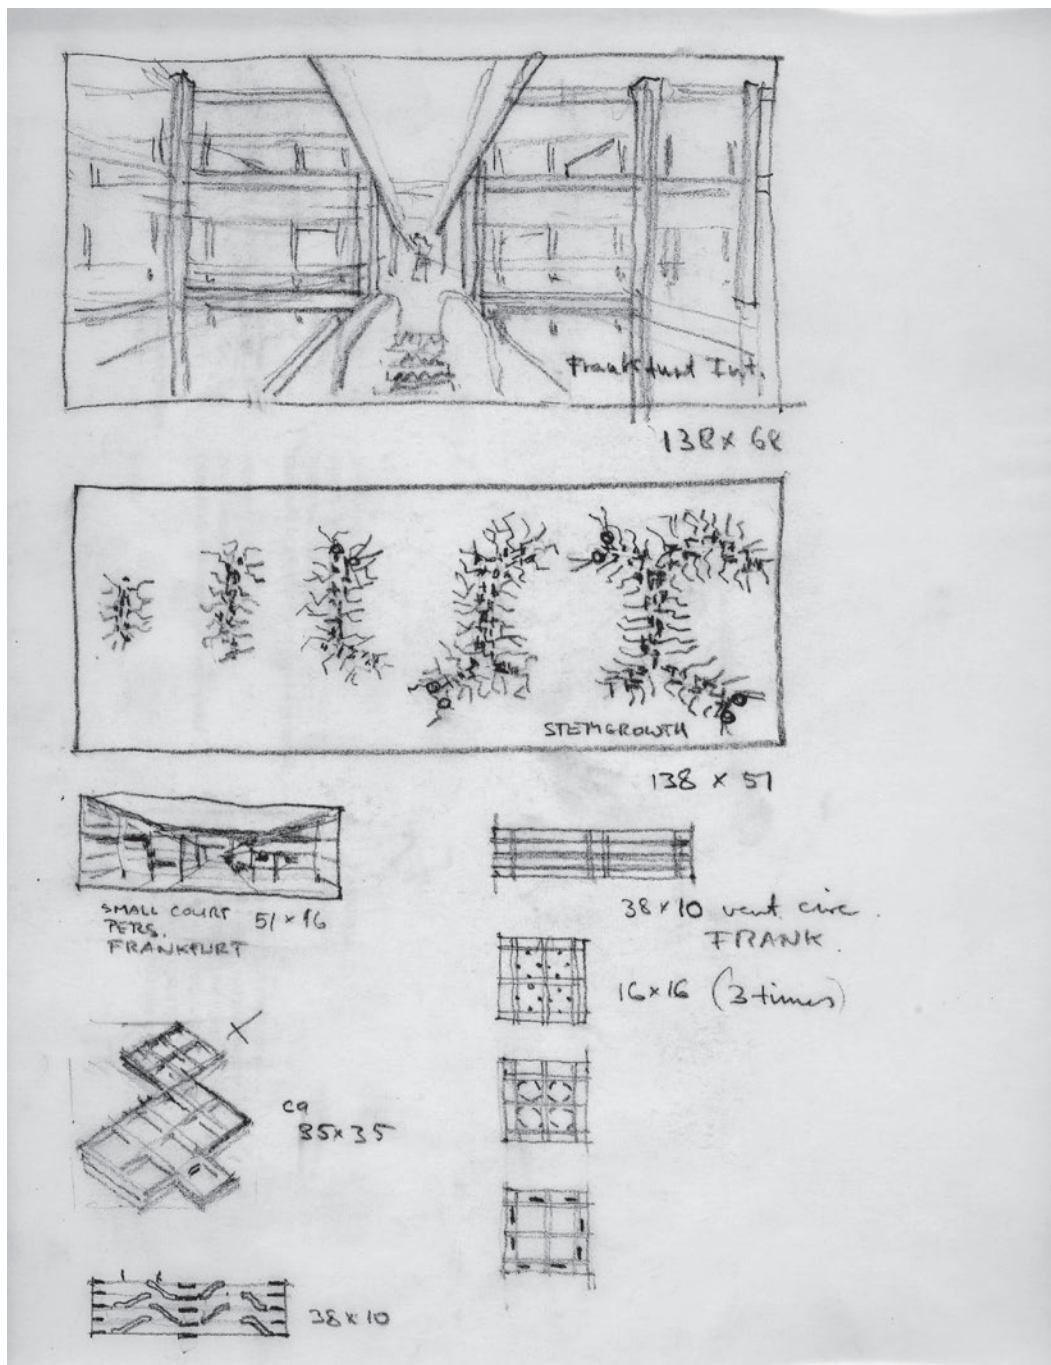 Frankfurt Int.
138 x 68
STEMGROWTH
138 x 51
SMALL COURT
PERS. 51 x 16
FRANKFURT
38 x 10 vent. circ.
FRANK.
16 x 16 (3 times)
X
ca
35 x 35
38 x 10